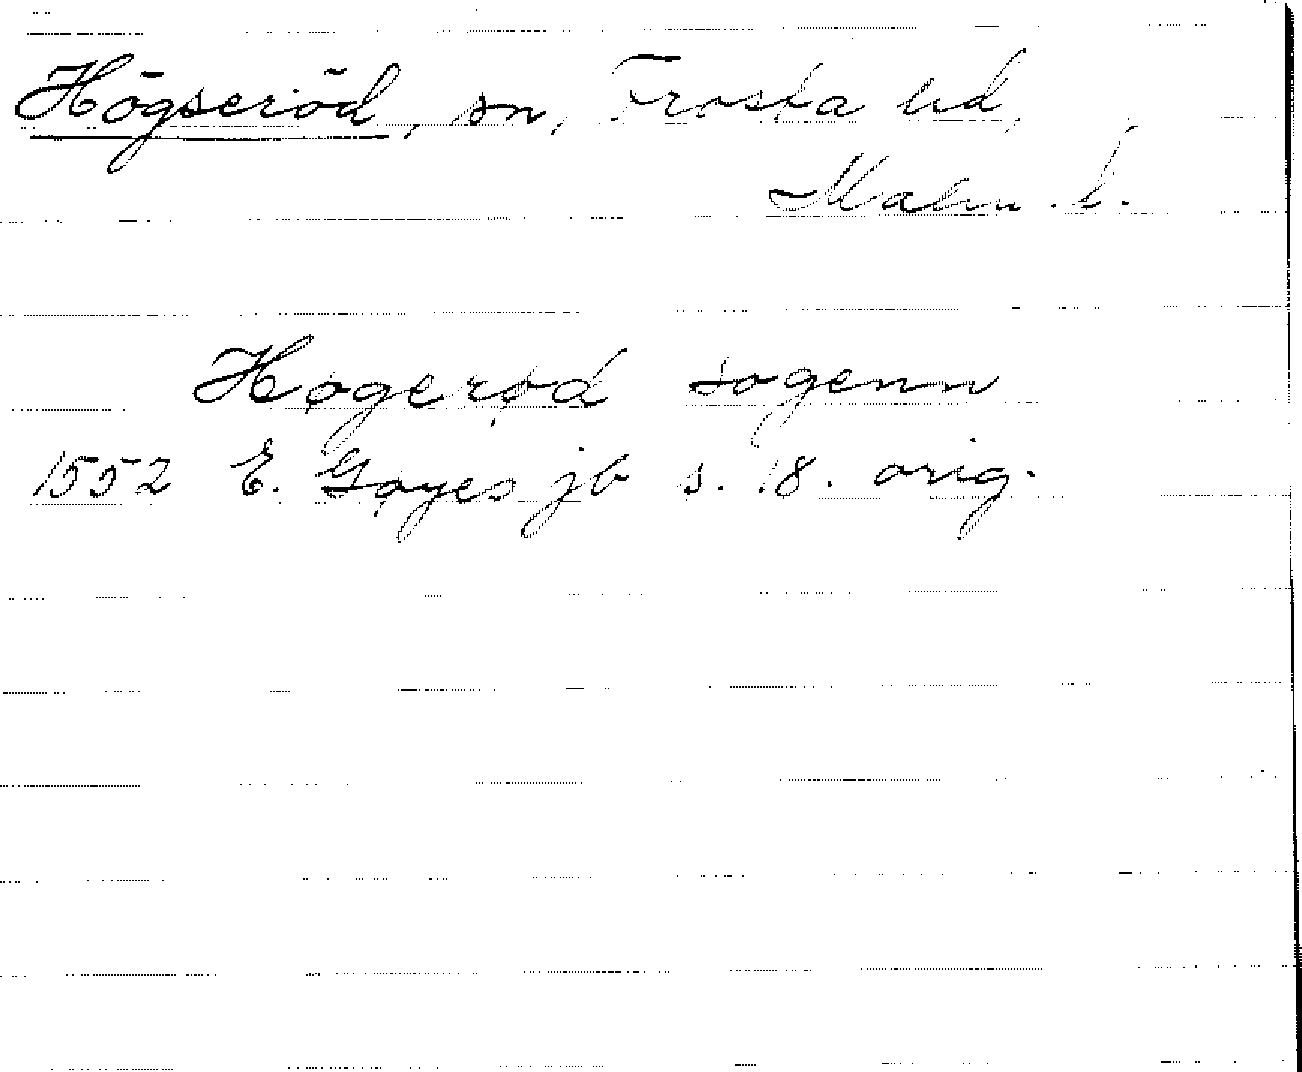 Högseröd, sn, Frosta hd,
Malm. l.
Høgerød sogenn
1552 E. Gøyes jb s. 18. orig.